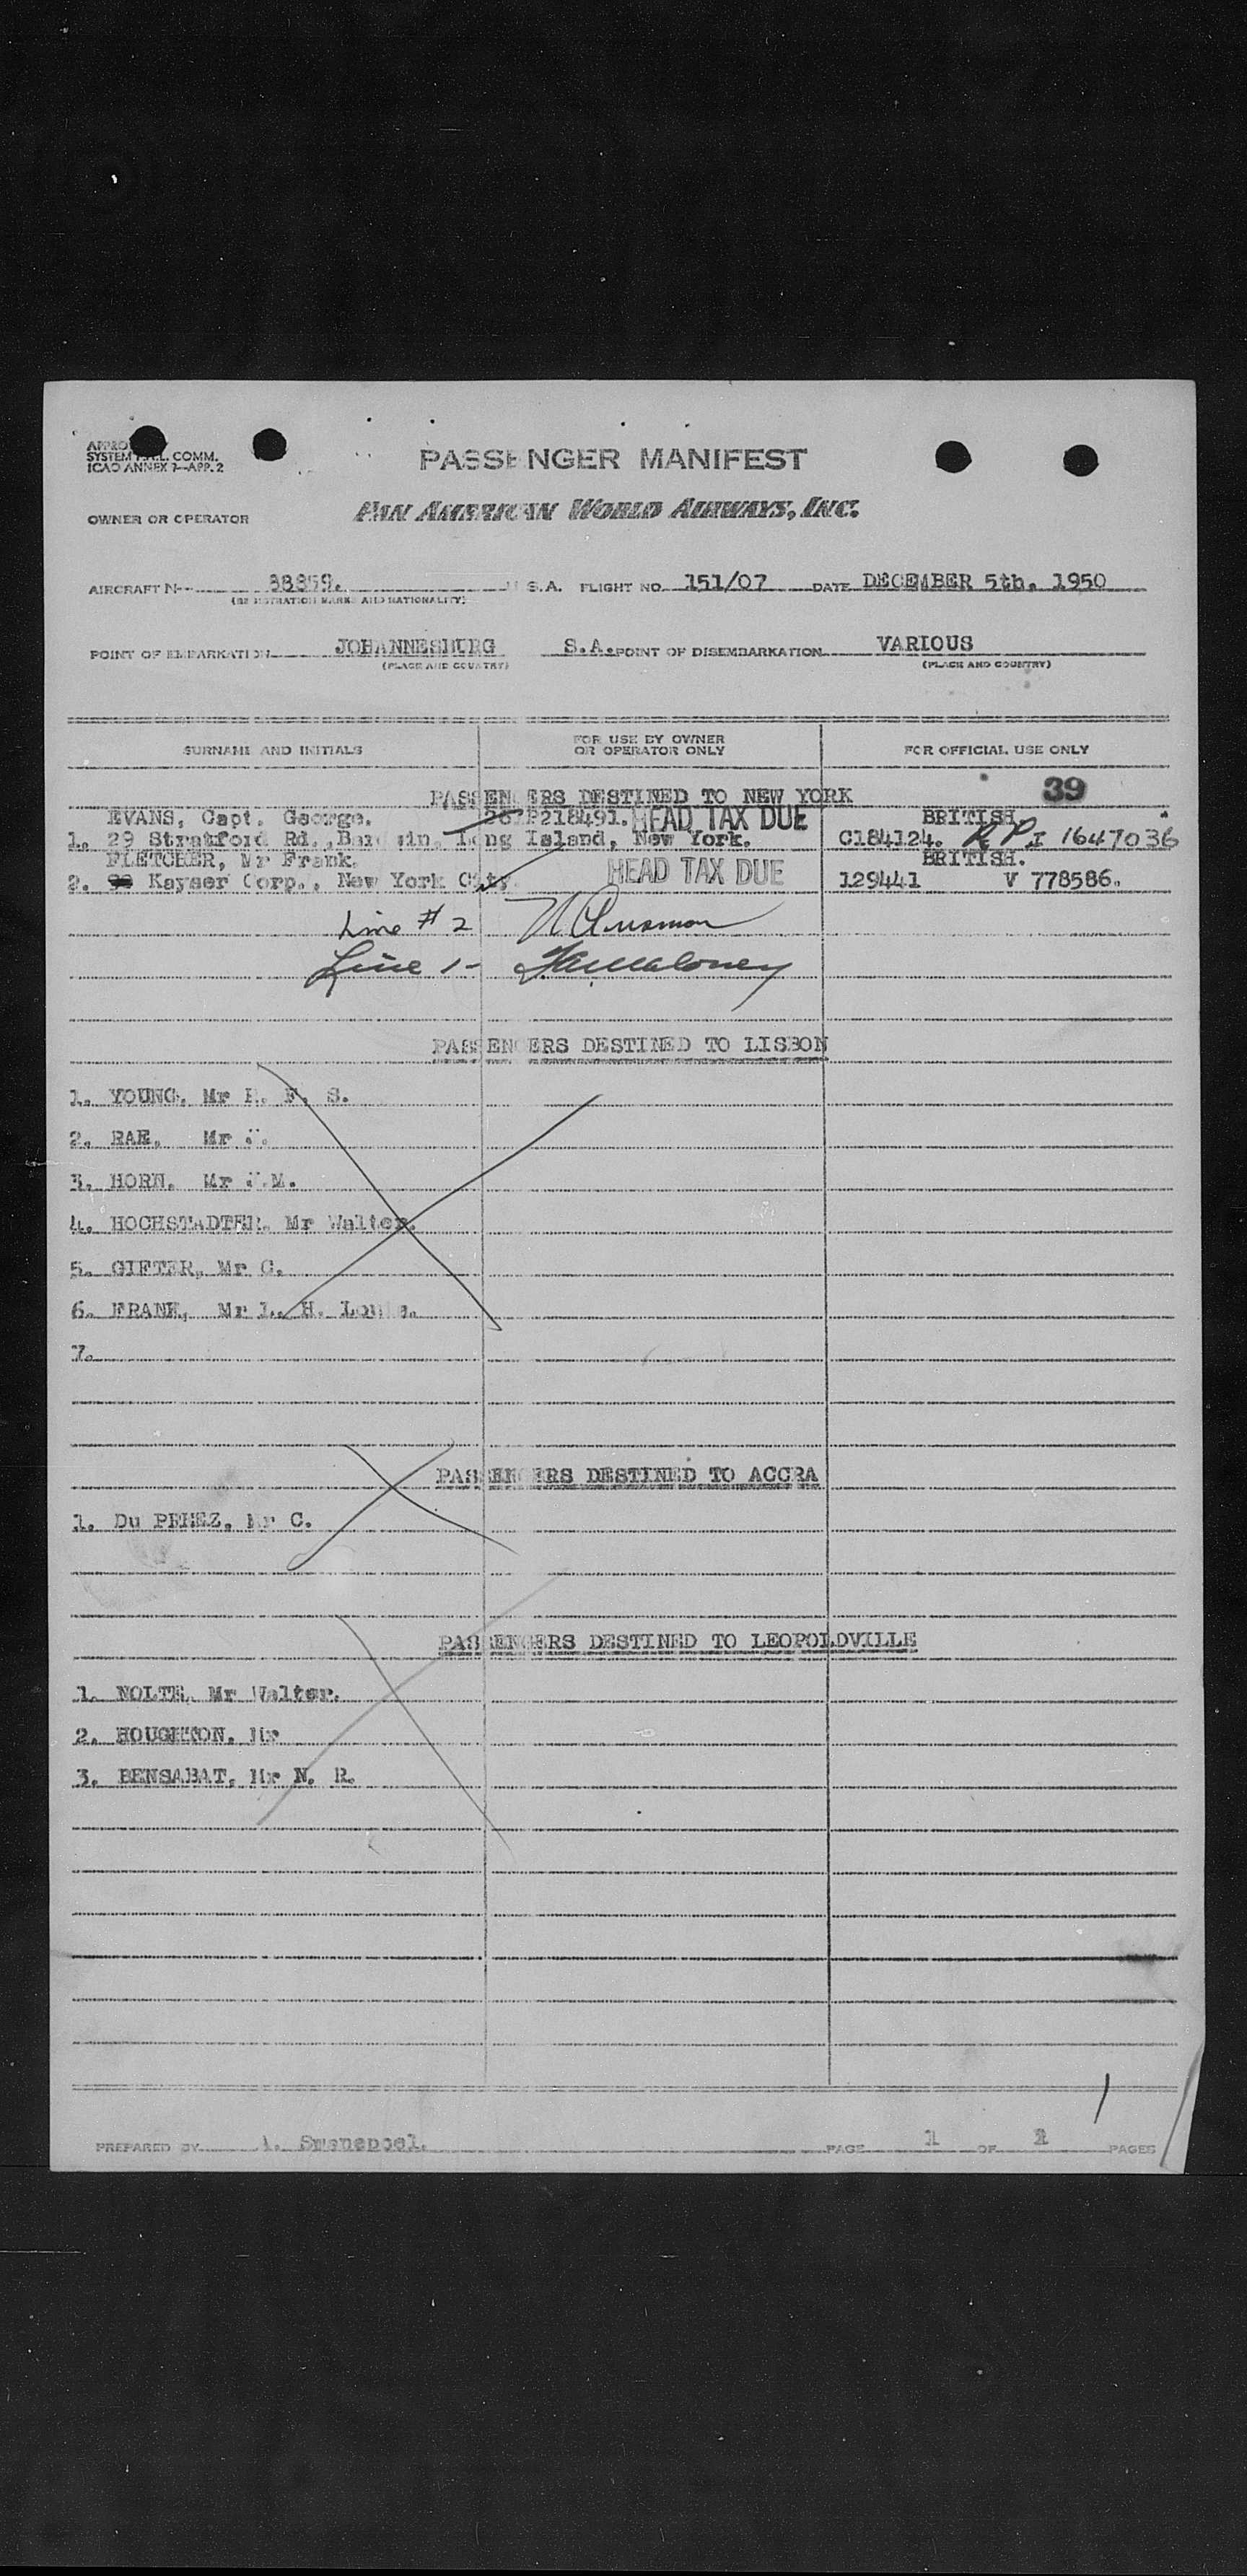 SYSTEM COMM.
ICAO ANNEX 7—APP. 2
PASSENGER MANIFEST
OWNER OR OPERATOR PAN AMERICAN WORLD AIRWAYS, INC.
AIRCRAFT N— 88859. U.S.A. FLIGHT NO. 151/07 DATE DECEMBER 5th. 1950
(REGISTRATION MARKS AND NATIONALITY)
POINT OF EMBARKATION JOHANNESBURG S.A. POINT OF DISEMBARKATION VARIOUS
(PLACE AND COUNTRY) (PLACE AND COUNTRY)
SURNAME AND INITIALS FOR USE BY OWNER OR OPERATOR ONLY FOR OFFICIAL USE ONLY
39
PASSENGERS DESTINED TO NEW YORK
EVANS, Capt. George. 26 P218491. HEAD TAX DUE BRITISH.
1. 29 Stratford Rd., Baldwin, Long Island, New York. C184124. RP I 1647036
FLETCHER, Mr Frank. BRITISH.
2. Kayser Corp., New York City. HEAD TAX DUE 129441 V 778586.
Line # 2
Line 1-
PASSENGERS DESTINED TO LISBON
1. YOUNG, Mr F. S.
2. RAE, Mr
3. HORN, Mr M.
4. HOCHSTADTER, Mr Walter.
5. GIFTER, Mr C.
6. FRANK, Mr L. H. Louis.
7.
PASSENGERS DESTINED TO ACCRA
1. Du PEREZ, Mr C.
PASSENGERS DESTINED TO LEOPOLDVILLE
1. NOLTE, Mr Walter.
2. HOUGHTON, Mr
3. BENSABAT, Mr N. R.
PREPARED BY A. Swanepoel. PAGE 1 OF PAGES